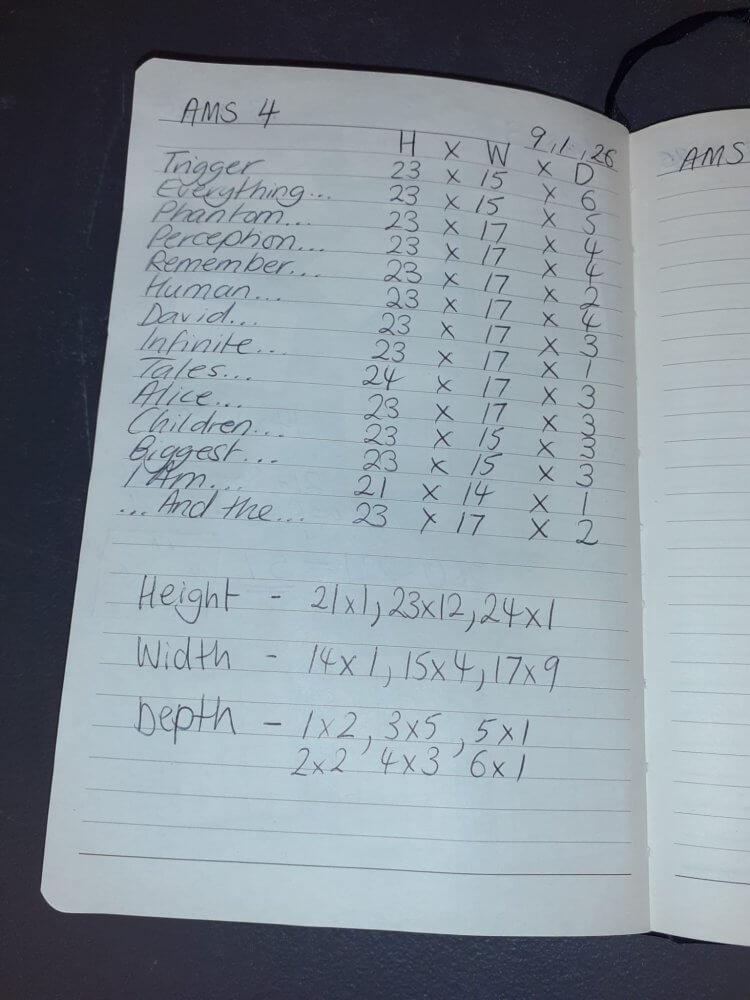 AMS 4
9,1,26
H x W x D
Trigger 23 x 15 x 6
Everything... 23 x 15 x 5
Phantom... 23 x 17 x 4
Perception... 23 x 17 x 4
Remember... 23 x 17 x 2
Human... 23 x 17 x 4
David... 23 x 17 x 3
Infinite... 23 x 17 x 1
Tales... 24 x 17 x 3
Alice... 23 x 17 x 3
Children... 23 x 15 x 3
Biggest... 23 x 15 x 3
I Am... 21 x 14 x 1
...And the... 23 x 17 x 2
Height - 21x1, 23x12, 24x1
Width - 14x1, 15x4, 17x9
Depth - 1x2, 3x5, 5x1
2x2 4x3 6x1
AMS